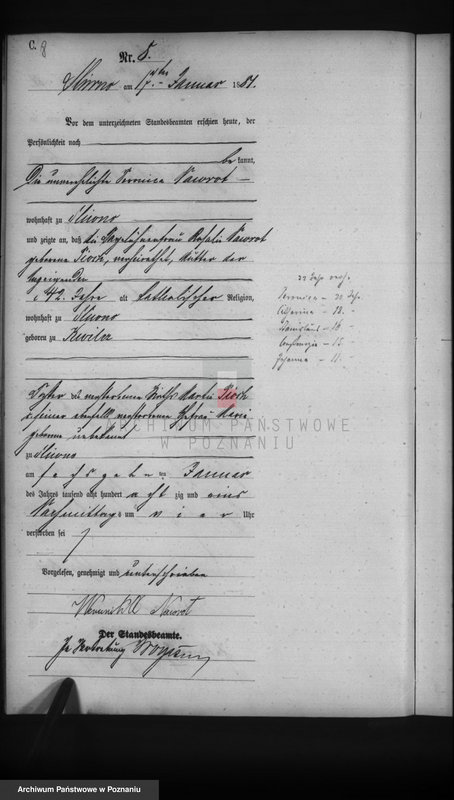 C. 8
Nr. 8.
am 17ten Januar 1881.
Vor dem unterzeichneten Standesbeamten erschien heute, der
Persönlichkeit nach
be kannt,
Die unverehelichte Veronica Nawrot
wohnhaft zu
und zeigte an, daß die Tagelöhnerfrau Rosalie Nawrot
geborene Tloch, verheirathet, Mutter der
Anzeigenden
42 Jahre alt katholischer Religion,
wohnhaft zu
geboren zu Kwilcz
Tochter des verstorbenen Wirths Martin Tloch
seiner ebenfalls verstorbenen Ehefrau Marie
geborene unbekannt
zu
am sechszehnten Januar
des Jahres tausend acht hundert acht zig und eins
Nachmittags um vier Uhr
verstorben sei
Vorgelesen, genehmigt und unterschrieben
Nawrot
Der Standesbeamte.
In Vertretung
Veronica - 20
Catharina - 18. -
Stanislaus - 16 -
- 13
Johanna - 11. -
ARCHIWUM PAŃSTWOWE
W POZNANIU
Archiwum Państwowe w Poznaniu